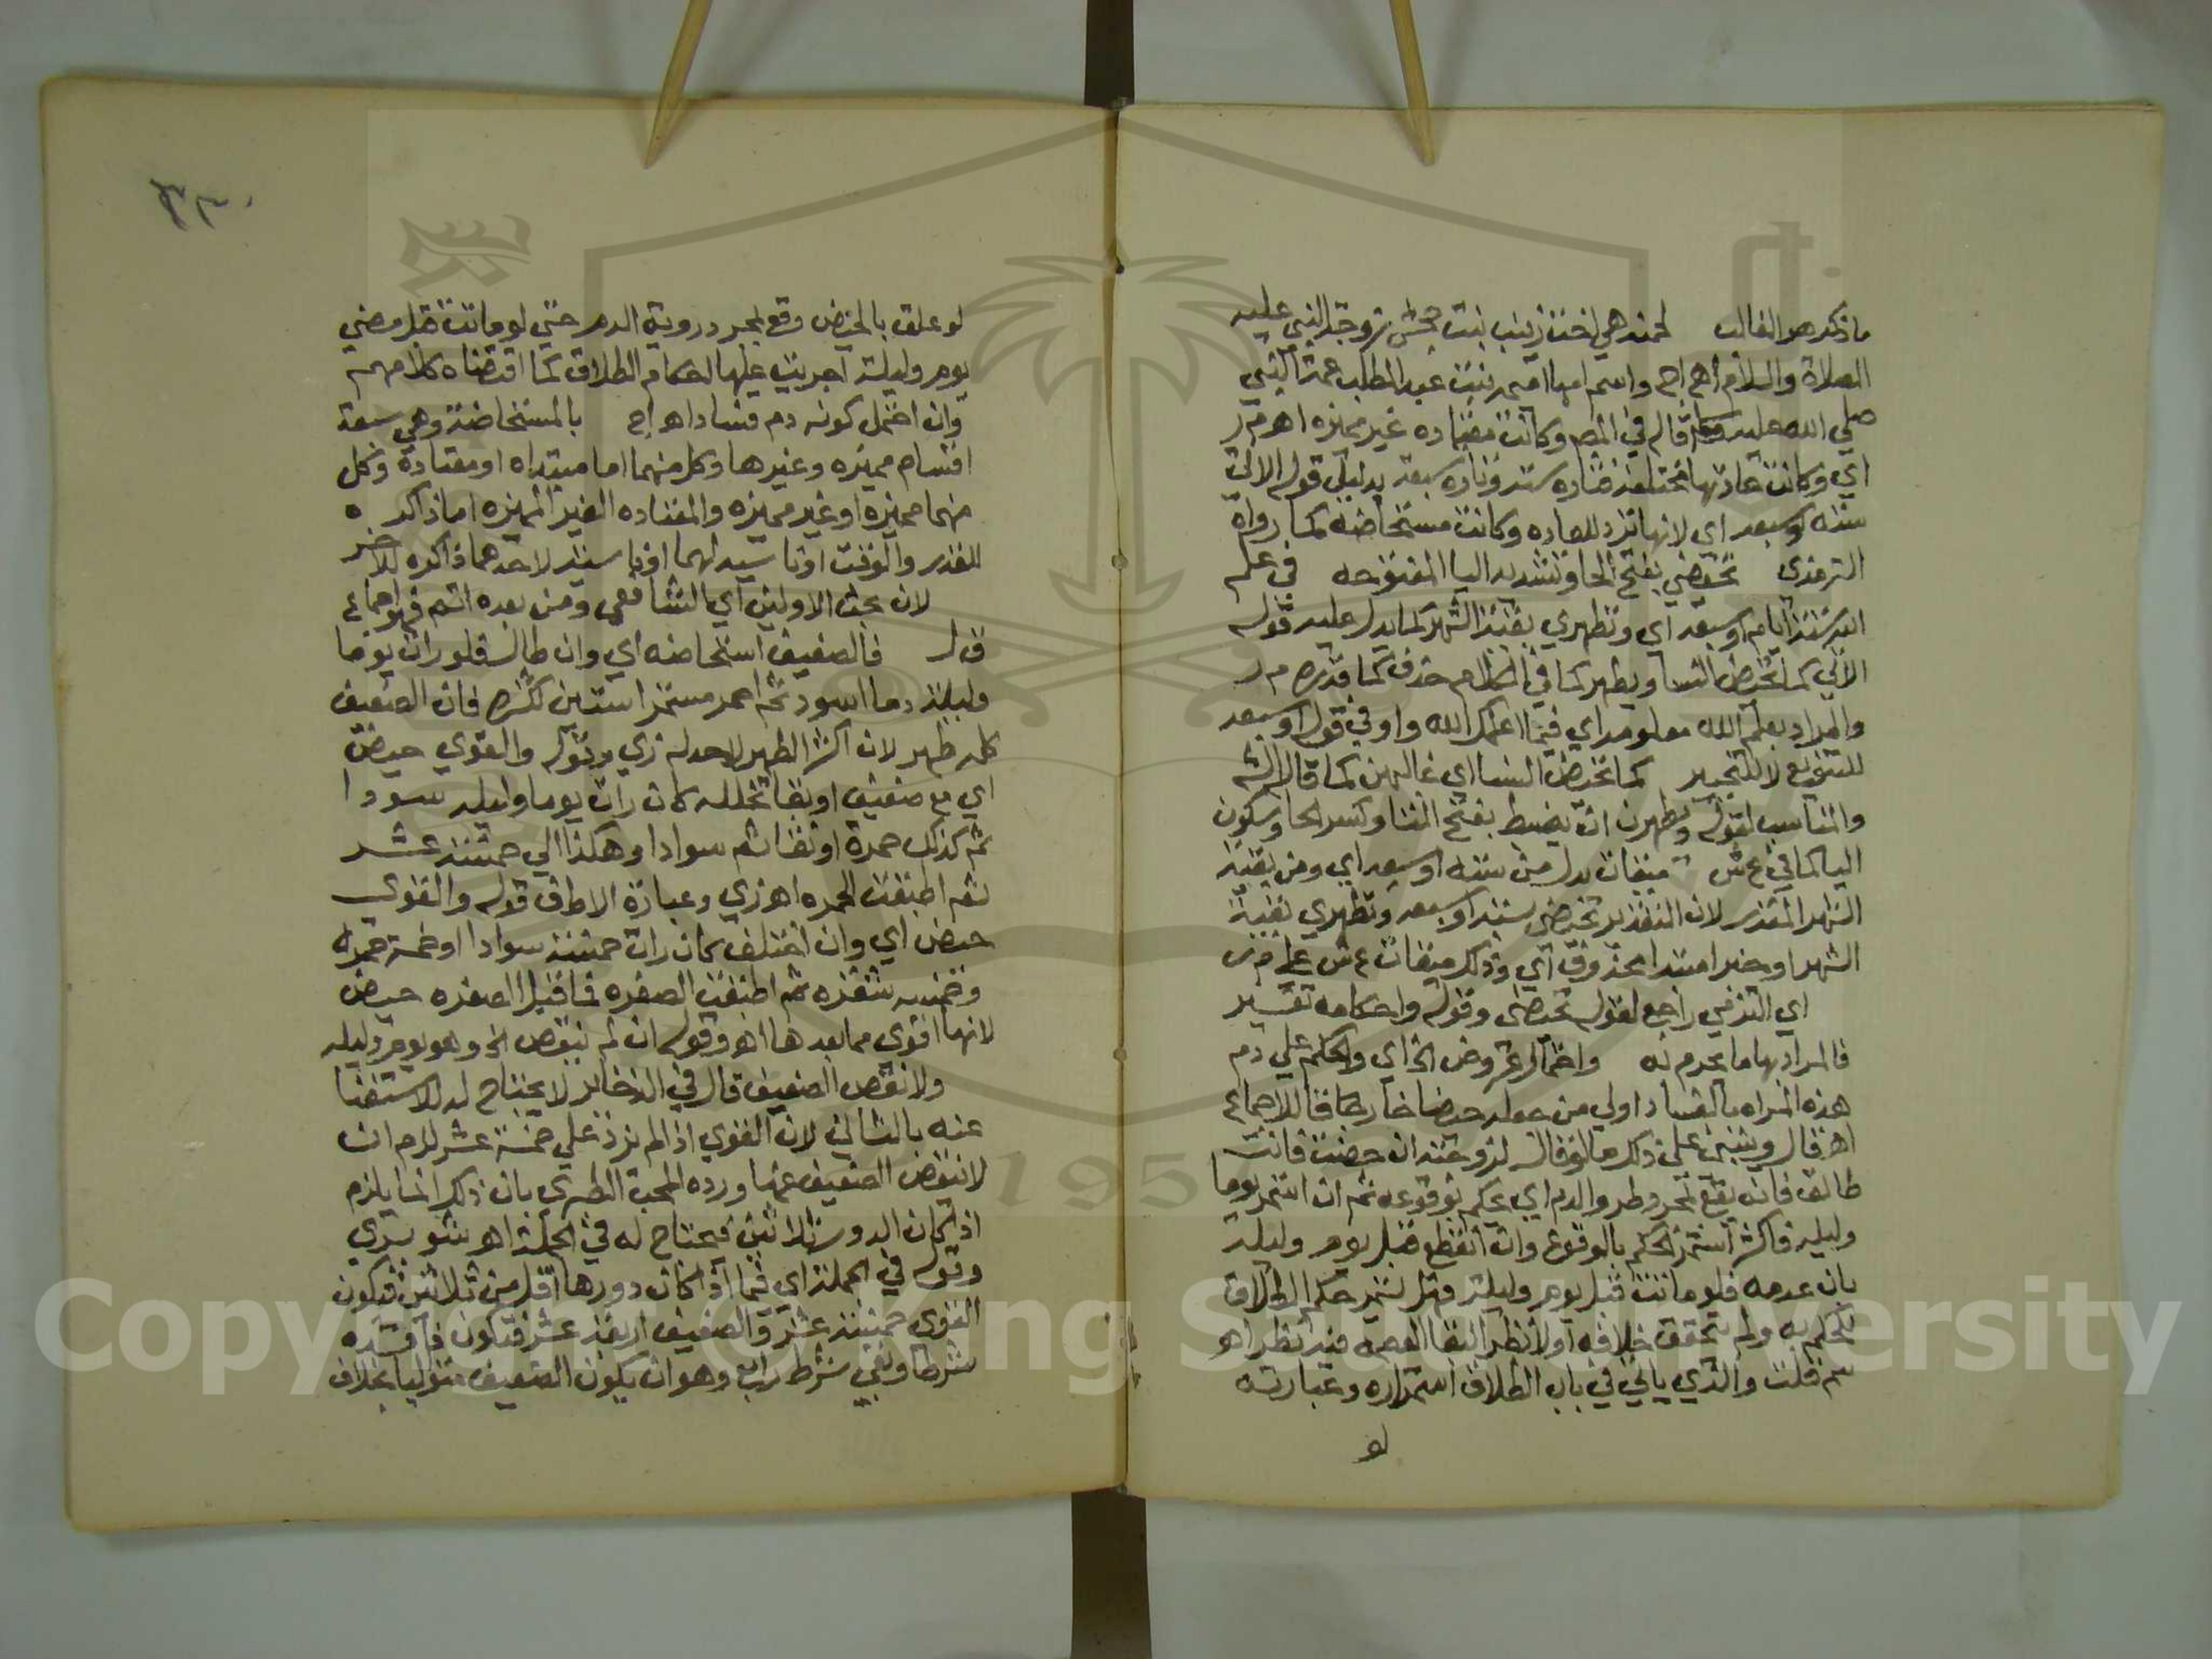 ما ذكره هو الغالب لحمنه هي اخت زينب بنت جحش زوجة النبي عليه
الصلاة والسلام اهـ اج واسم امها اميمه بنت عبد المطلب عمة النبي
صلي الله عليه وسلم قال في المص وكانت معتاده غير مميزه اهـ م ر
اي وكانت عادتها مختلفة فتاره سته وتاره سبعه بدليل قوله الاتي
سته او سبعه اي لانها ترد للعاده وكانت مستحاضه كما رواه
الترمذي تحيضي بفتح الحا وتشديد اليا المفتوحه في علم
الله ستة ايام او سبعه اي وتطهري بقية الشهر كما يدل عليه قوله
الاتي كما تحيض النسا ويطهر كما في الكلام حذف كما قدره م ر
والمراد بعلم الله معلومه اي فيما اعلمك الله واو في قوله او سبعه
للتنويع لا للتخيير كما تحيض النسا اي غالبهن كما قال الش
والمناسب لقوله وتطهرن ان يضبط بفتح التا وكسر الحا وسكون
اليا كما في ع ش ميقات بدل من سته او سبعه اي ومن بقية
الشهر المقدر لان التقدير تحيضي ستة او سبعه وتطهري بقية
الشهر او خبر مبتدا محذوف اي وذلك ميقات ع ش علي م ر
اي التزمي راجع لقوله تحيضي وقوله واحكامه تفسير
فالمراد بها ما يحرم به واحتمال عروض الخ اي والحكم علي دم
هذه المراه بالفساد اولي من جعله حيضا خارقا للاجماع
اهـ قال وينبني علي ذلك ما لو قال لزوجته ان حضت فانت
طالق فانه يقع بمجرد طرو الدم اي يحكم بوقوعه ثم ان استمر يوما
وليله فاكثر استمر الحكم بالوقوع وان انقطع قبل يوم وليلة
بان عدمه فلو ماتت قبل يوم وليلة فهل يستمر حكم الطلاق
للحكم به ولم يتحقق خلافه او لا نظر البقا العصمه فيه نظر اهـ
سم قلت والذي ياتي في باب الطلاق استمراره وعبارته
لو
لو علق بالحيض وقع بمجرد روية الدم حتي لو ماتت قبل مضي
يوم وليلة اجريت عليها احكام الطلاق كما اقتضاه كلامهم
وان احتمل كونه دم فساد اهـ اج بالمستحاضة وهي سبعة
اقسام مميزه وغيرها وكل منهما اما مبتداه او معتادة وكل
منهما مميزه او غير مميزه والمعتاده الغير المميزه اما ذاكره
للقدر والوقت او ناسيه لهما او ناسية لاحدهما ذاكره للاخر
لان بحث الاولين اي الشافعي ومن بعده اتم فهو اجماع
ق ل فالضعيف استحاضه اي وان طال فلو رات يوما
وليلة دما اسود ثم احمر مستمرا سنين كثيره فان الضعيف
كله طهر لان اكثر الطهر لا حد له زي وقوله والقوي حيض
اي مع ضعيف او نقا تخلله كان رات يوما وليله سودا
ثم كذلك حمرة او نقا ثم سوادا وهكذا الي خمسة عشر
ثم اطبقت الحمره اهـ زي وعبارة الاطف قوله والقوي
حيض اي وان اختلف كان رات خمسة سوادا او خمسة حمره
وخمسه شقره ثم اطبقت الصفره فما قبل الصفره حيض
لانها اقوي مما بعدها اهـ وقوله ان لم ينقص الخ وهو يوم وليله
ولا نقص الضعيف قال في الذخاير لا يحتاج له للاستغنا
عنه بالثاني لان القوي اذا لم يزد علي خمسة عشر لزم ان
لا ينقص الضعيف عنها ورده المحب الطبري بان ذلك انما يلزم
اذا كان الدور ثلاثين فيحتاج له في الجملة اهـ شوبري
وقوله في الجملة اي فيما اذا كان دورها اقل من ثلاثين فيكون
القوي خمسة عشر والضعيف اربعة عشر فتكون فاقده
شرطا وبقي شرط رابع وهو ان يكون الضعيف متواليا بخلاف
Copyright © King Saud University
1957